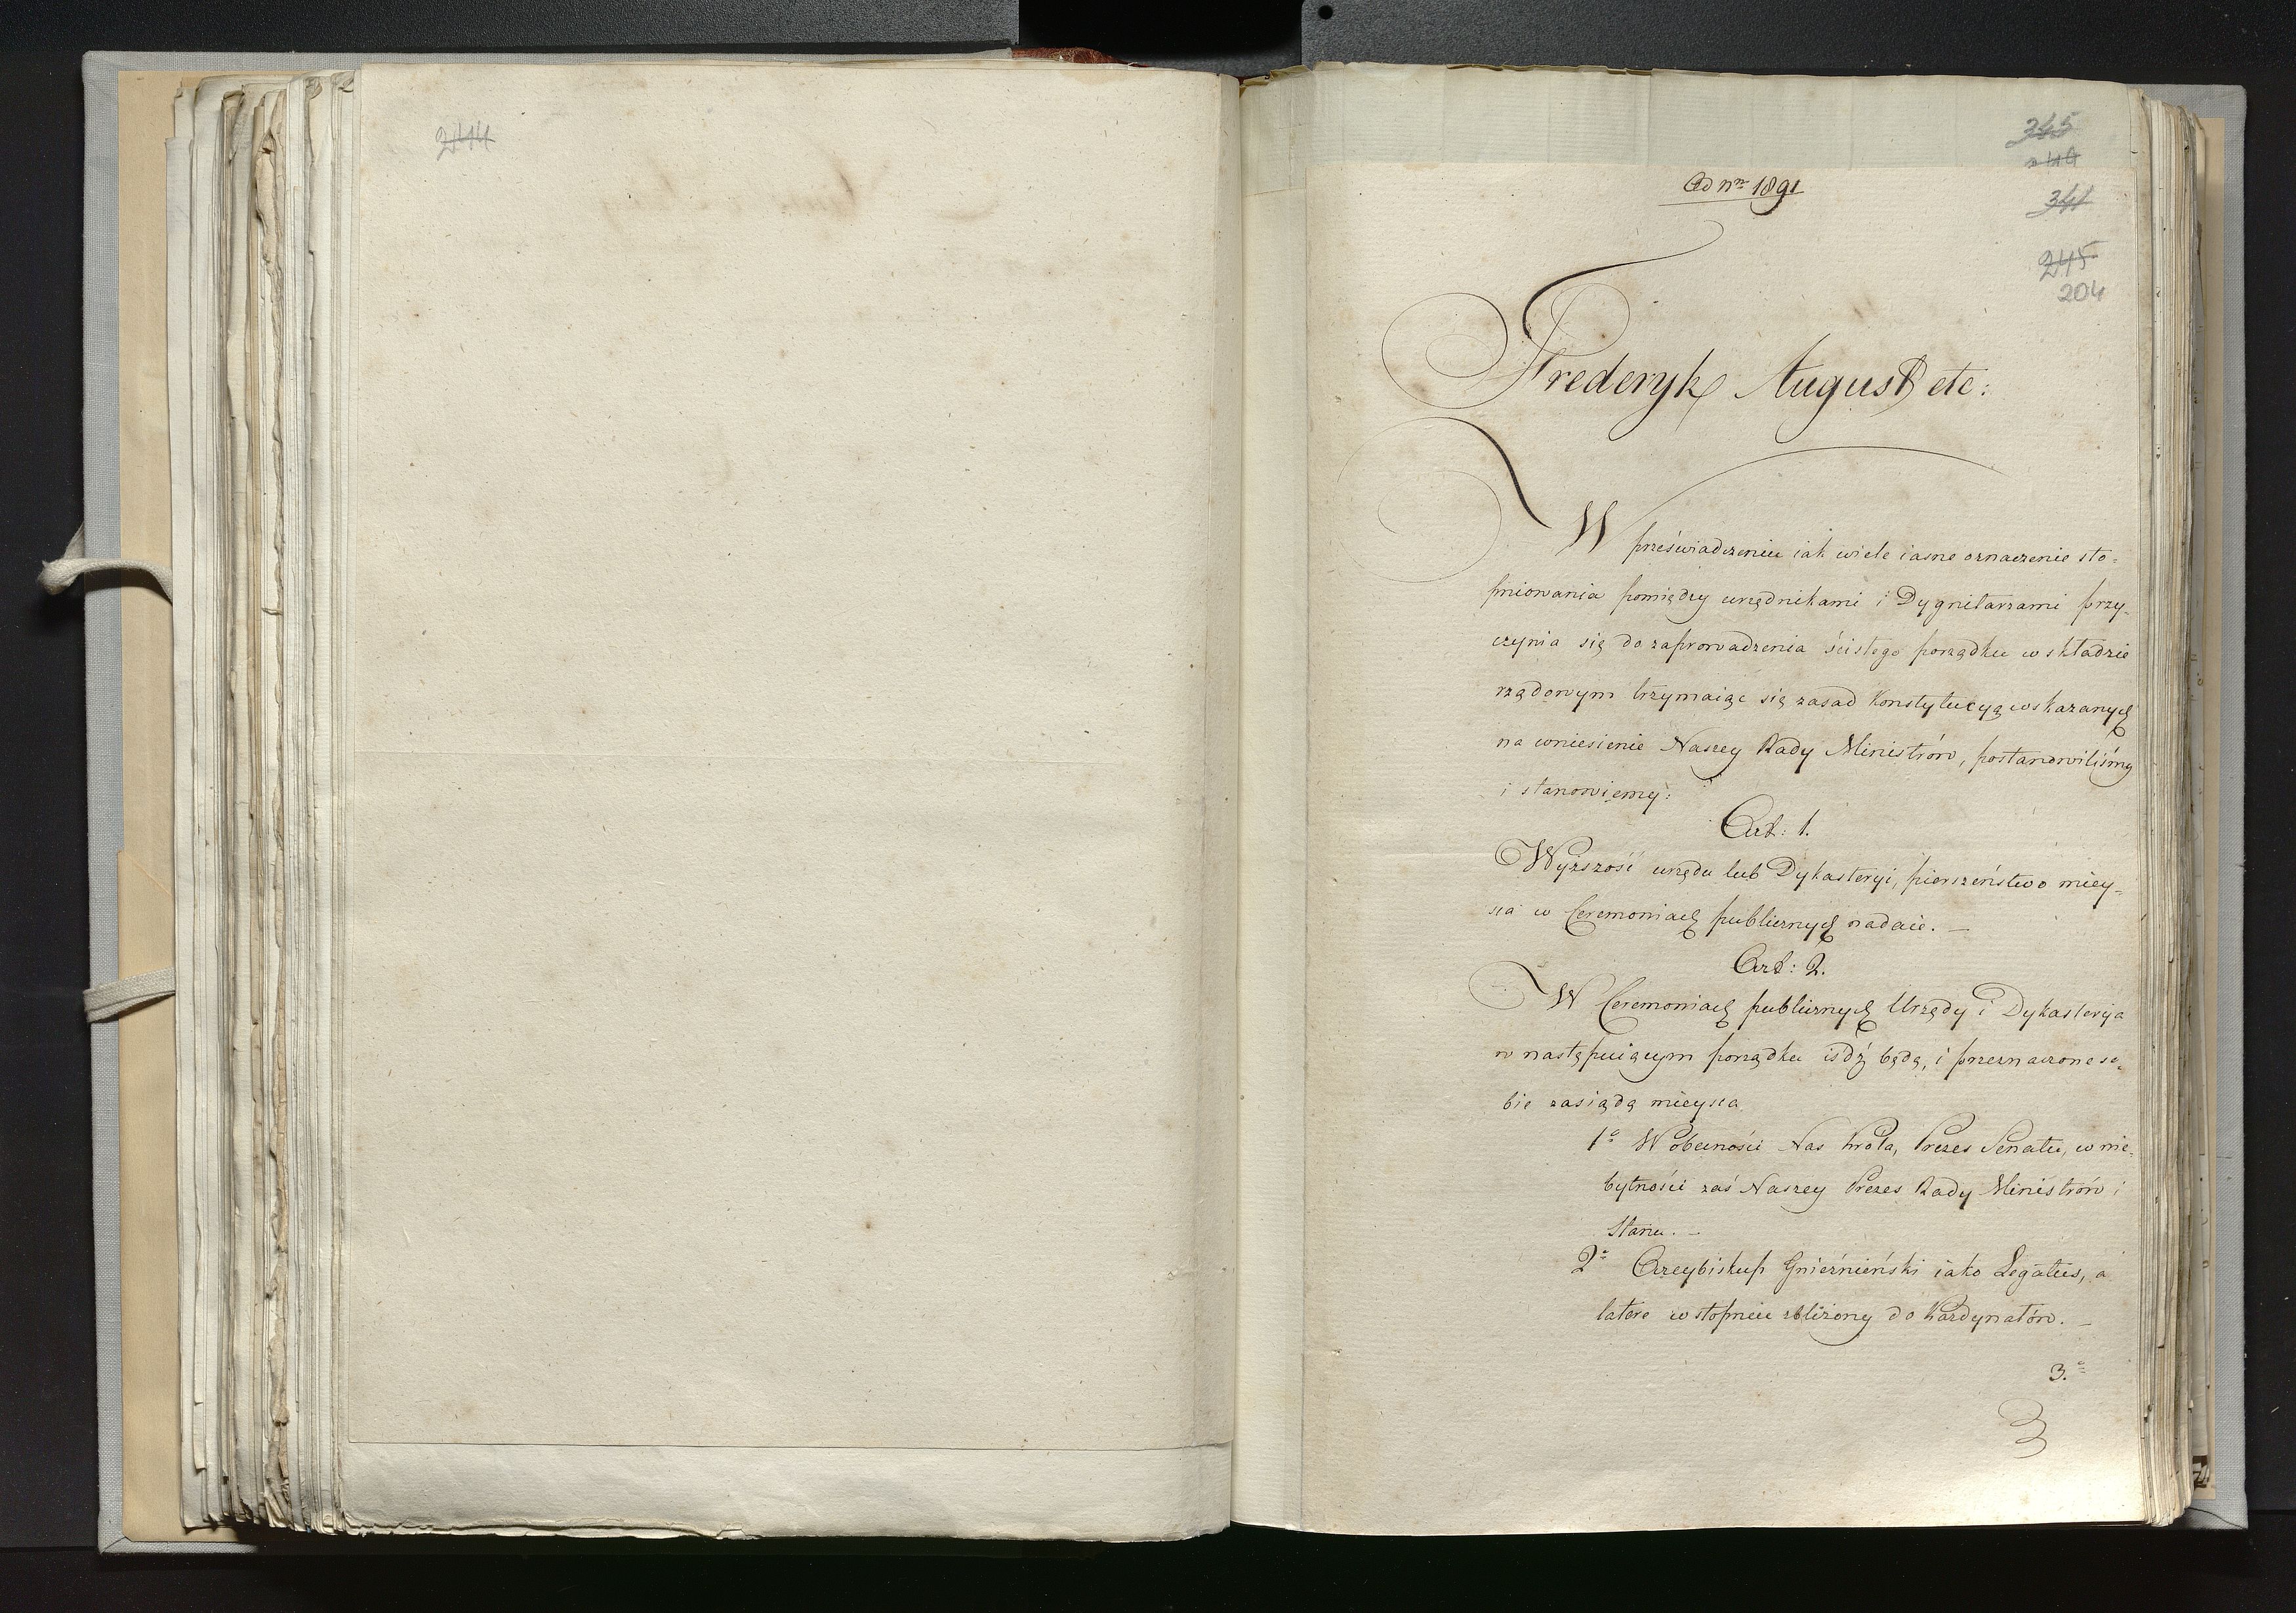 244
345
341
245
204
Ad nrm 1891
Frederyk August etc:
W przeświadczeniu iak wiele iasne oznaczenie sto-
pniowania pomiędzy urzędnikami i Dygnitarzami przy-
czynia się do zaprowadzenia ścisłego porządku w składzie
rządowym trzymaiąc się zasad Konstytucyą wskazanych
na wniesienie Naszey Rady Ministrów, postanowiliśmy
i stanowiemy:
Art: 1.
Wyższość urzędu lub Dykasteryi, pierszeństwo miey-
sca w Ceremoniach publicznych nadaie. —
Art: 2.
W Ceremoniach publicznych Urzędy i Dykasterya
w następuiącym porządku iśdź będą, i przeznaczone so-
bie zasiądą mieysca
1o W obecności Nas Króla, Prezes Senatu, w nie-
bytności zaś Naszey Prezes Rady Ministrów i
Stanu. —
2o Arcybiskup Gnieźnieński iako Legatus, a
latere w stopniu zbliżony do Kardynałów. —
3.o